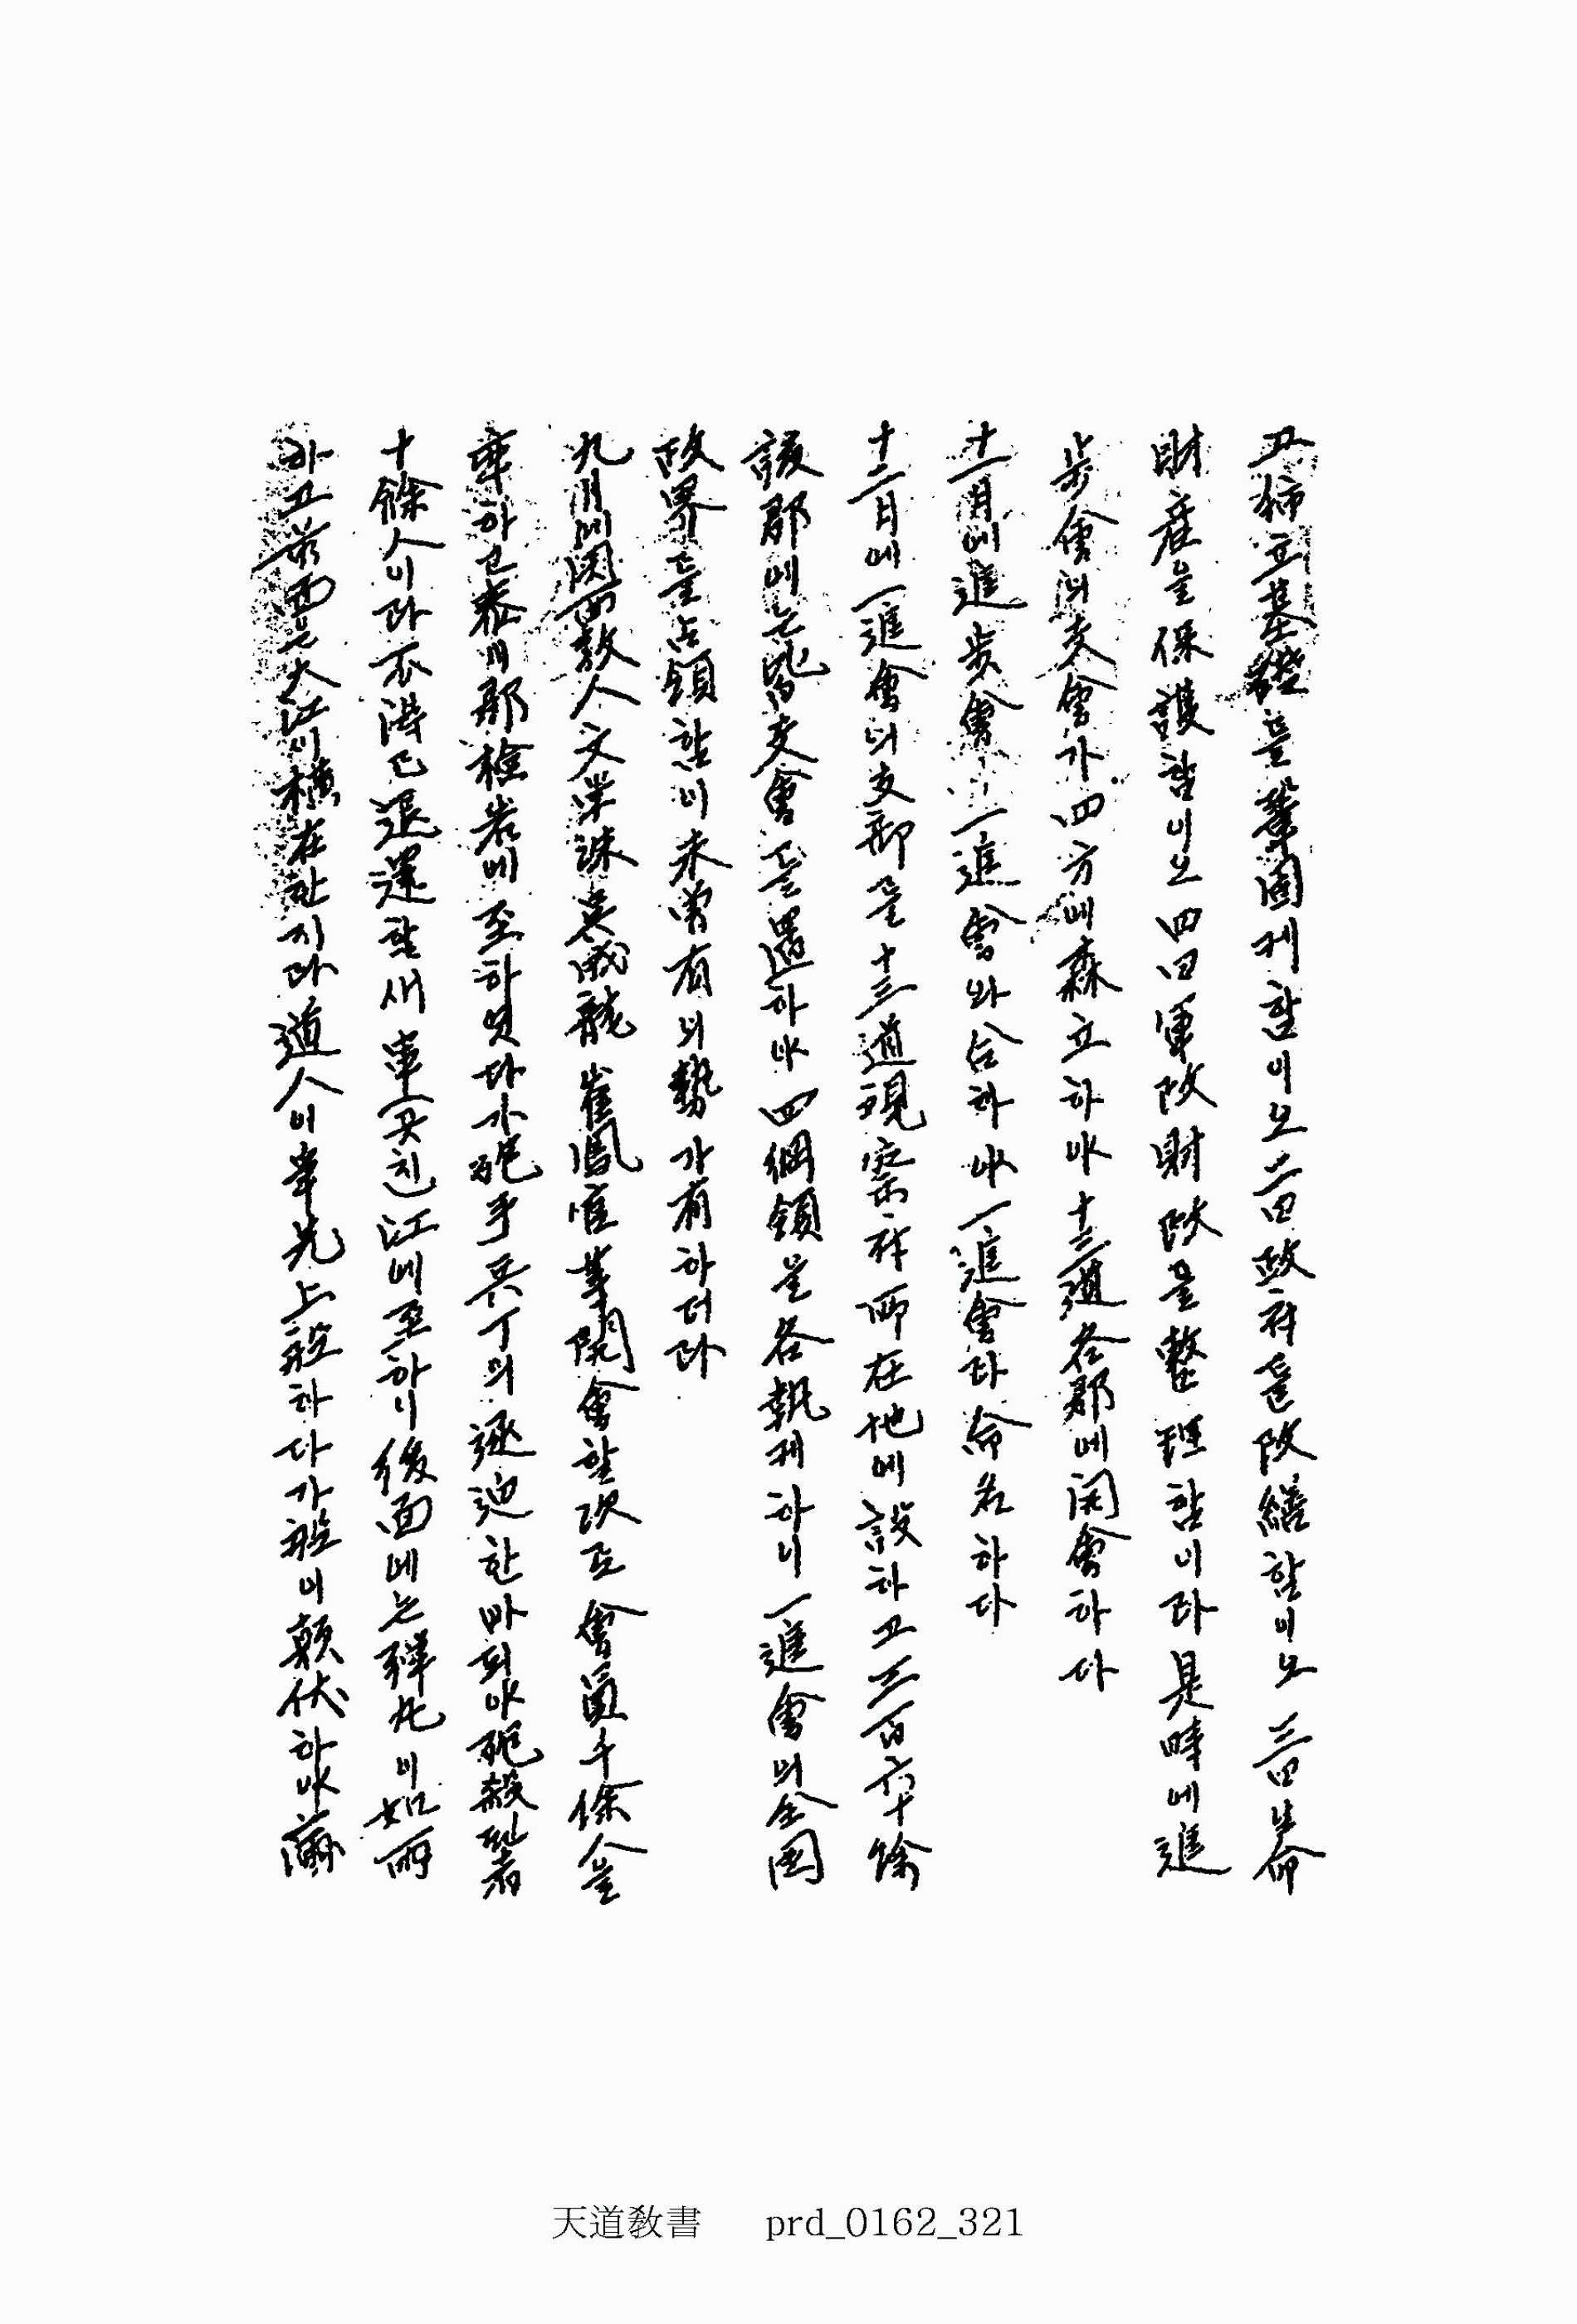 고 獨立基礎를 鞏固케 함이오 二曰 政府를 改善함이오 三曰 生命
財産을 保護함이오 四曰 軍政財政을 整理함이라 是時에 進
步會의 支會가 四方에 森立하야 十三道各郡에 開會하다
十一月에 進步會 一進會와 合하야 一進會라 命名하다
十二月에 一進會의 支部를 十三道觀察府所在地에 設하고 三百六十餘
郡에는 皆支會를 置하야 四綱領을 各執케 하니 一進會의 全國
政界를 占領함이 未曾有의 勢가 有하더라
九月에 関西敎人 文學洙 吳成龍 崔鳳官 等 開會할 次로 會員千餘人을
率하고 泰川郡 檢岩에 至하엿다가 砲手兵丁의 逐迫한 바 되야 砲殺된 者
十餘人이라 不得已 退還할새 串곳친江에 至하니 後面에는 彈丸이 如雨
하고 前面는 大江이 橫在한지라 道人이 率先上船하다가 船이 顚伏하야 溺
天道敎書 prd_0162_321